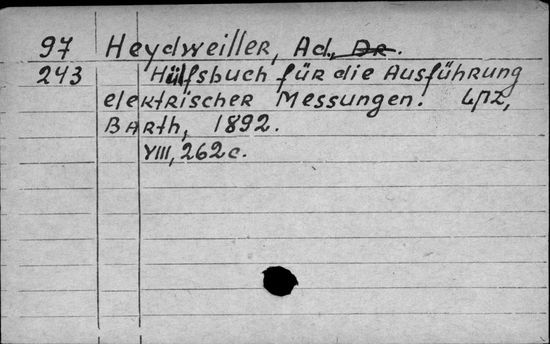 97 Heydweiller, Ad., Dr.
243 Hülfsbuch für die Ausführung
elektrischer Messungen. Lpz,
Barth, 1892.
VIII, 262 c.